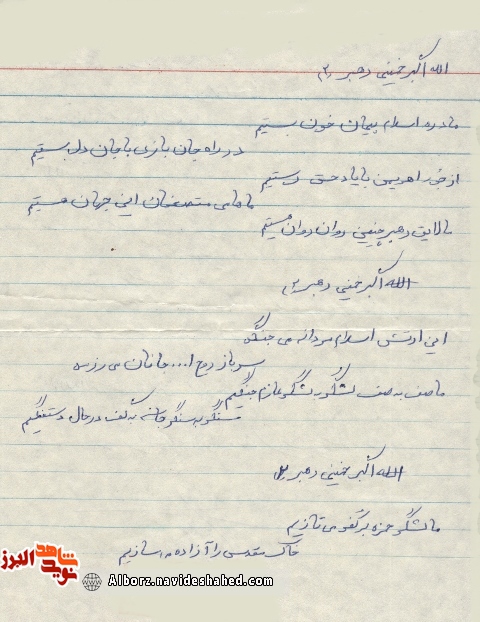 الله اکبر خمینی رهبر (۲)
ما در ره اسلام پیمان خون بستیم
در راه جان بازی با جان دل بستیم
از خود اهریمن با یاد حق رستیم
ما حامی مستضعفان این جهان هستیم
ما لایق رهبر خمینی روان روان هستیم
الله اکبر خمینی رهبر (۲)
این ارتش اسلام مردانه می جنگد
سرباز روح ا... جانان می رزمد
ما صف به صف لشگر به لشگر عازم جنگیم
سنگر به سنگر به کف در حال
الله اکبر خمینی رهبر (۲)
ما لشگر حمزه بر کفر می تازیم
خاک مقدس را آزاده می سازیم
شاهد
نوید
البرز
Alborz.navideshahed.com